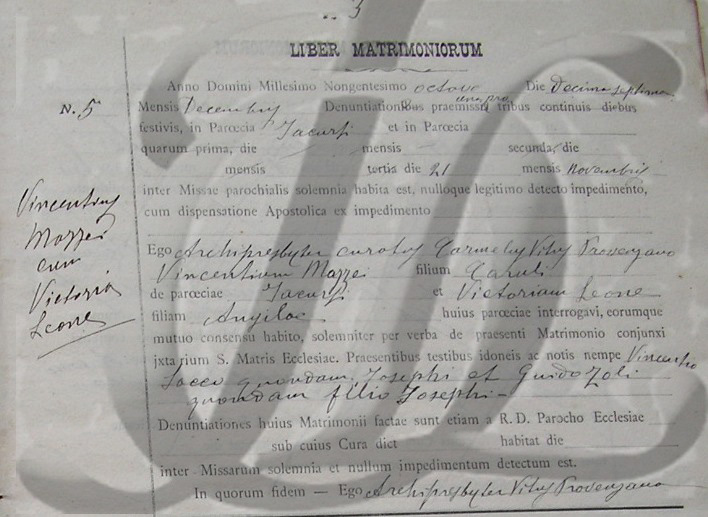 3
LIBER MATRIMONIORUM
Anno Domini Millesimo Nongentesimo octavo Die Decima septima
N. 5
Mensis Decembris Denuntiationibus praemissis una pro tribus continuis diebus
festivis, in Parœcia Jacursi et in Parœcia
quarum prima, die mensis secunda, die
mensis tertia die 21 mensis Novembris
inter Missae parochialis solemnia habita est, nulloque legitimo detecto impedimento,
cum dispensatione Apostolica ex impedimento
Vincentius
Mazzei
cum
Victoria
Leone
Ego Archipresbyter curatus Carmelus Vitus Provenzano
Vincentium Mazzei filium Caroli
de parœciae Jacursi et Victoriam Leone
filiam huius parœciae interrogavi, eorumque
mutuo consensu habito, solemniter per verba de praesenti Matrimonio conjunxi
jxta rium S. Matris Ecclesiae. Praesentibus testibus idoneis ac notis nempe Vincentio
quondam Josephi et Guido
quondam filio Josephi -
Denuntiationes huius Matrimonii factae sunt etiam a R. D. Parocho Ecclesiae
sub cuius Cura dict habitat die
inter Missarum solemnia et nullum impedimentum detectum est.
In quorum fidem — Ego Archipresbyter Vitus Provenzano